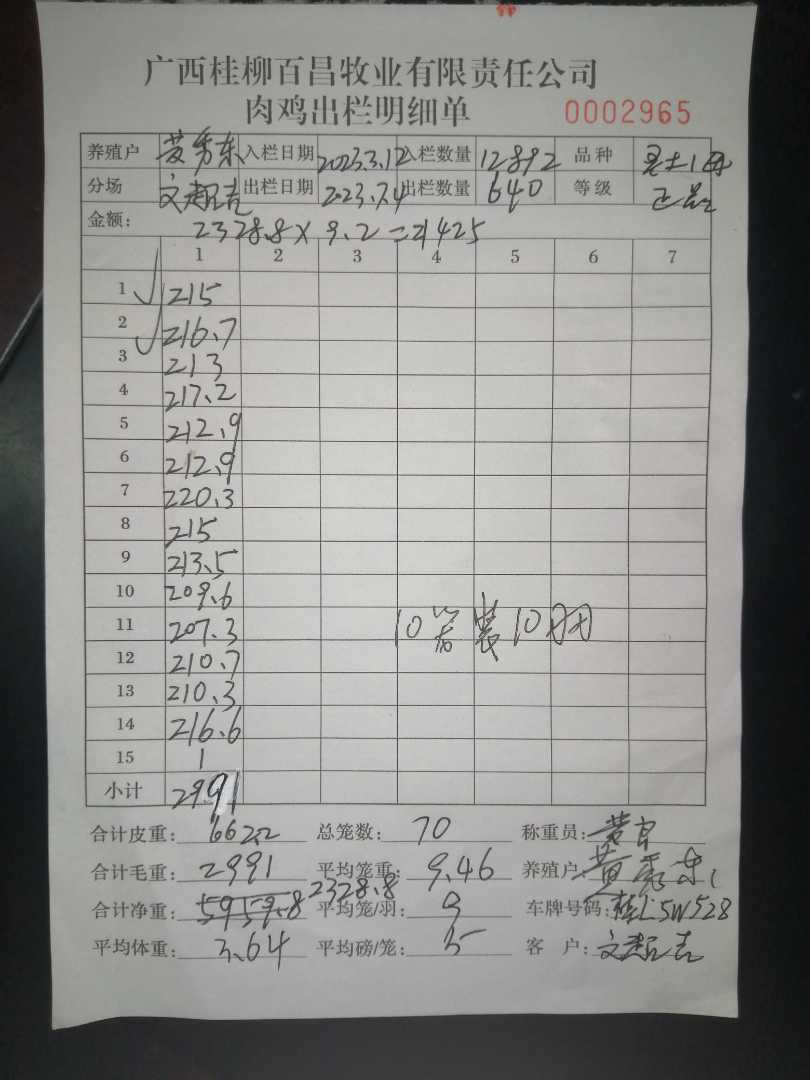 广西桂柳百昌牧业有限责任公司
肉鸡出栏明细单 0002965
养殖户 黄秀东 入栏日期 2023.3.12 入栏数量 12892 品种
分场 文超吉 出栏日期 223.7.4 出栏数量 640 等级 正品
金额: 2328.8 x 9.2 = 21425
1 2 3 4 5 6 7
1 215
2 216.7
3 213
4 217.2
5 212.9
6 212.9
7 220.3
8 215
9 213.5
10 209.6
11 207.3 10笼装10羽
12 210.7
13 210.3
14 216.6
15 1
小计 2991
合计皮重: 662.2 总笼数: 70 称重员:
合计毛重: 2991 平均笼重: 9.46 养殖户: 黄秀东
合计净重: 5959.8 2328.8 平均笼/羽: 9 车牌号码: 桂L5W528
平均体重: 3.64 平均磅/笼: 5 客户: 文超吉